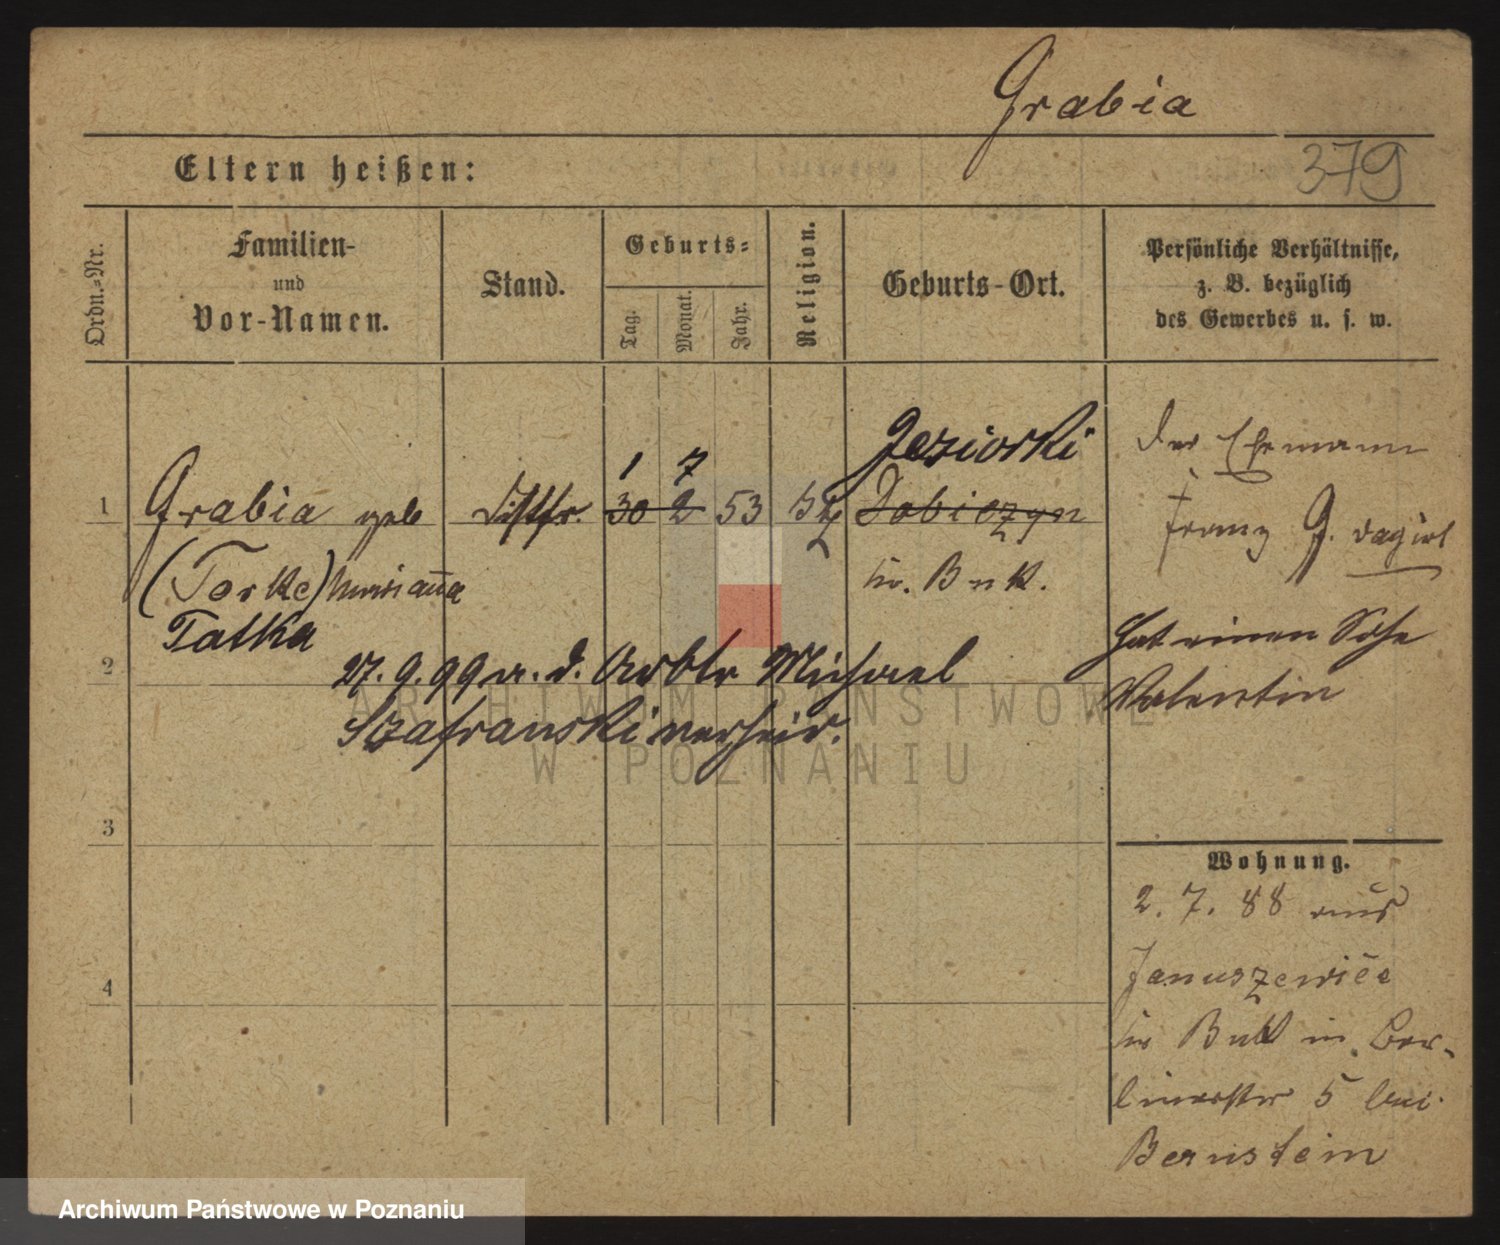 Grabia
379
Eltern heißen:
Ordn.-Nr.
Familien-
und
Vor-Namen.
Stand.
Geburts-
Tag.
Monat.
Jahr.
Religion.
Geburts-Ort.
Persönliche Verhältnisse,
z. B. bezüglich
des Gewerbes u. s. w.
1 7
Jeziorki
Der Ehemann
1 Grabia geb 30 2 53 Dobiezyn
Franz G.
(Torke) Marianna
Kr. Buk.
Tatka
Hat einen Sohn
2 27. 9. 99 m. d. Arbtr Michael
Valentin
Szafranski verheir.
3
Wohnung.
2. 7. 88 aus
Januszewice
4
Kr Buk in Ber-
linerstr 5 bei
Bernstein
ARCHIWUM PAŃSTWOWE
W POZNANIU
Archiwum Państwowe w Poznaniu